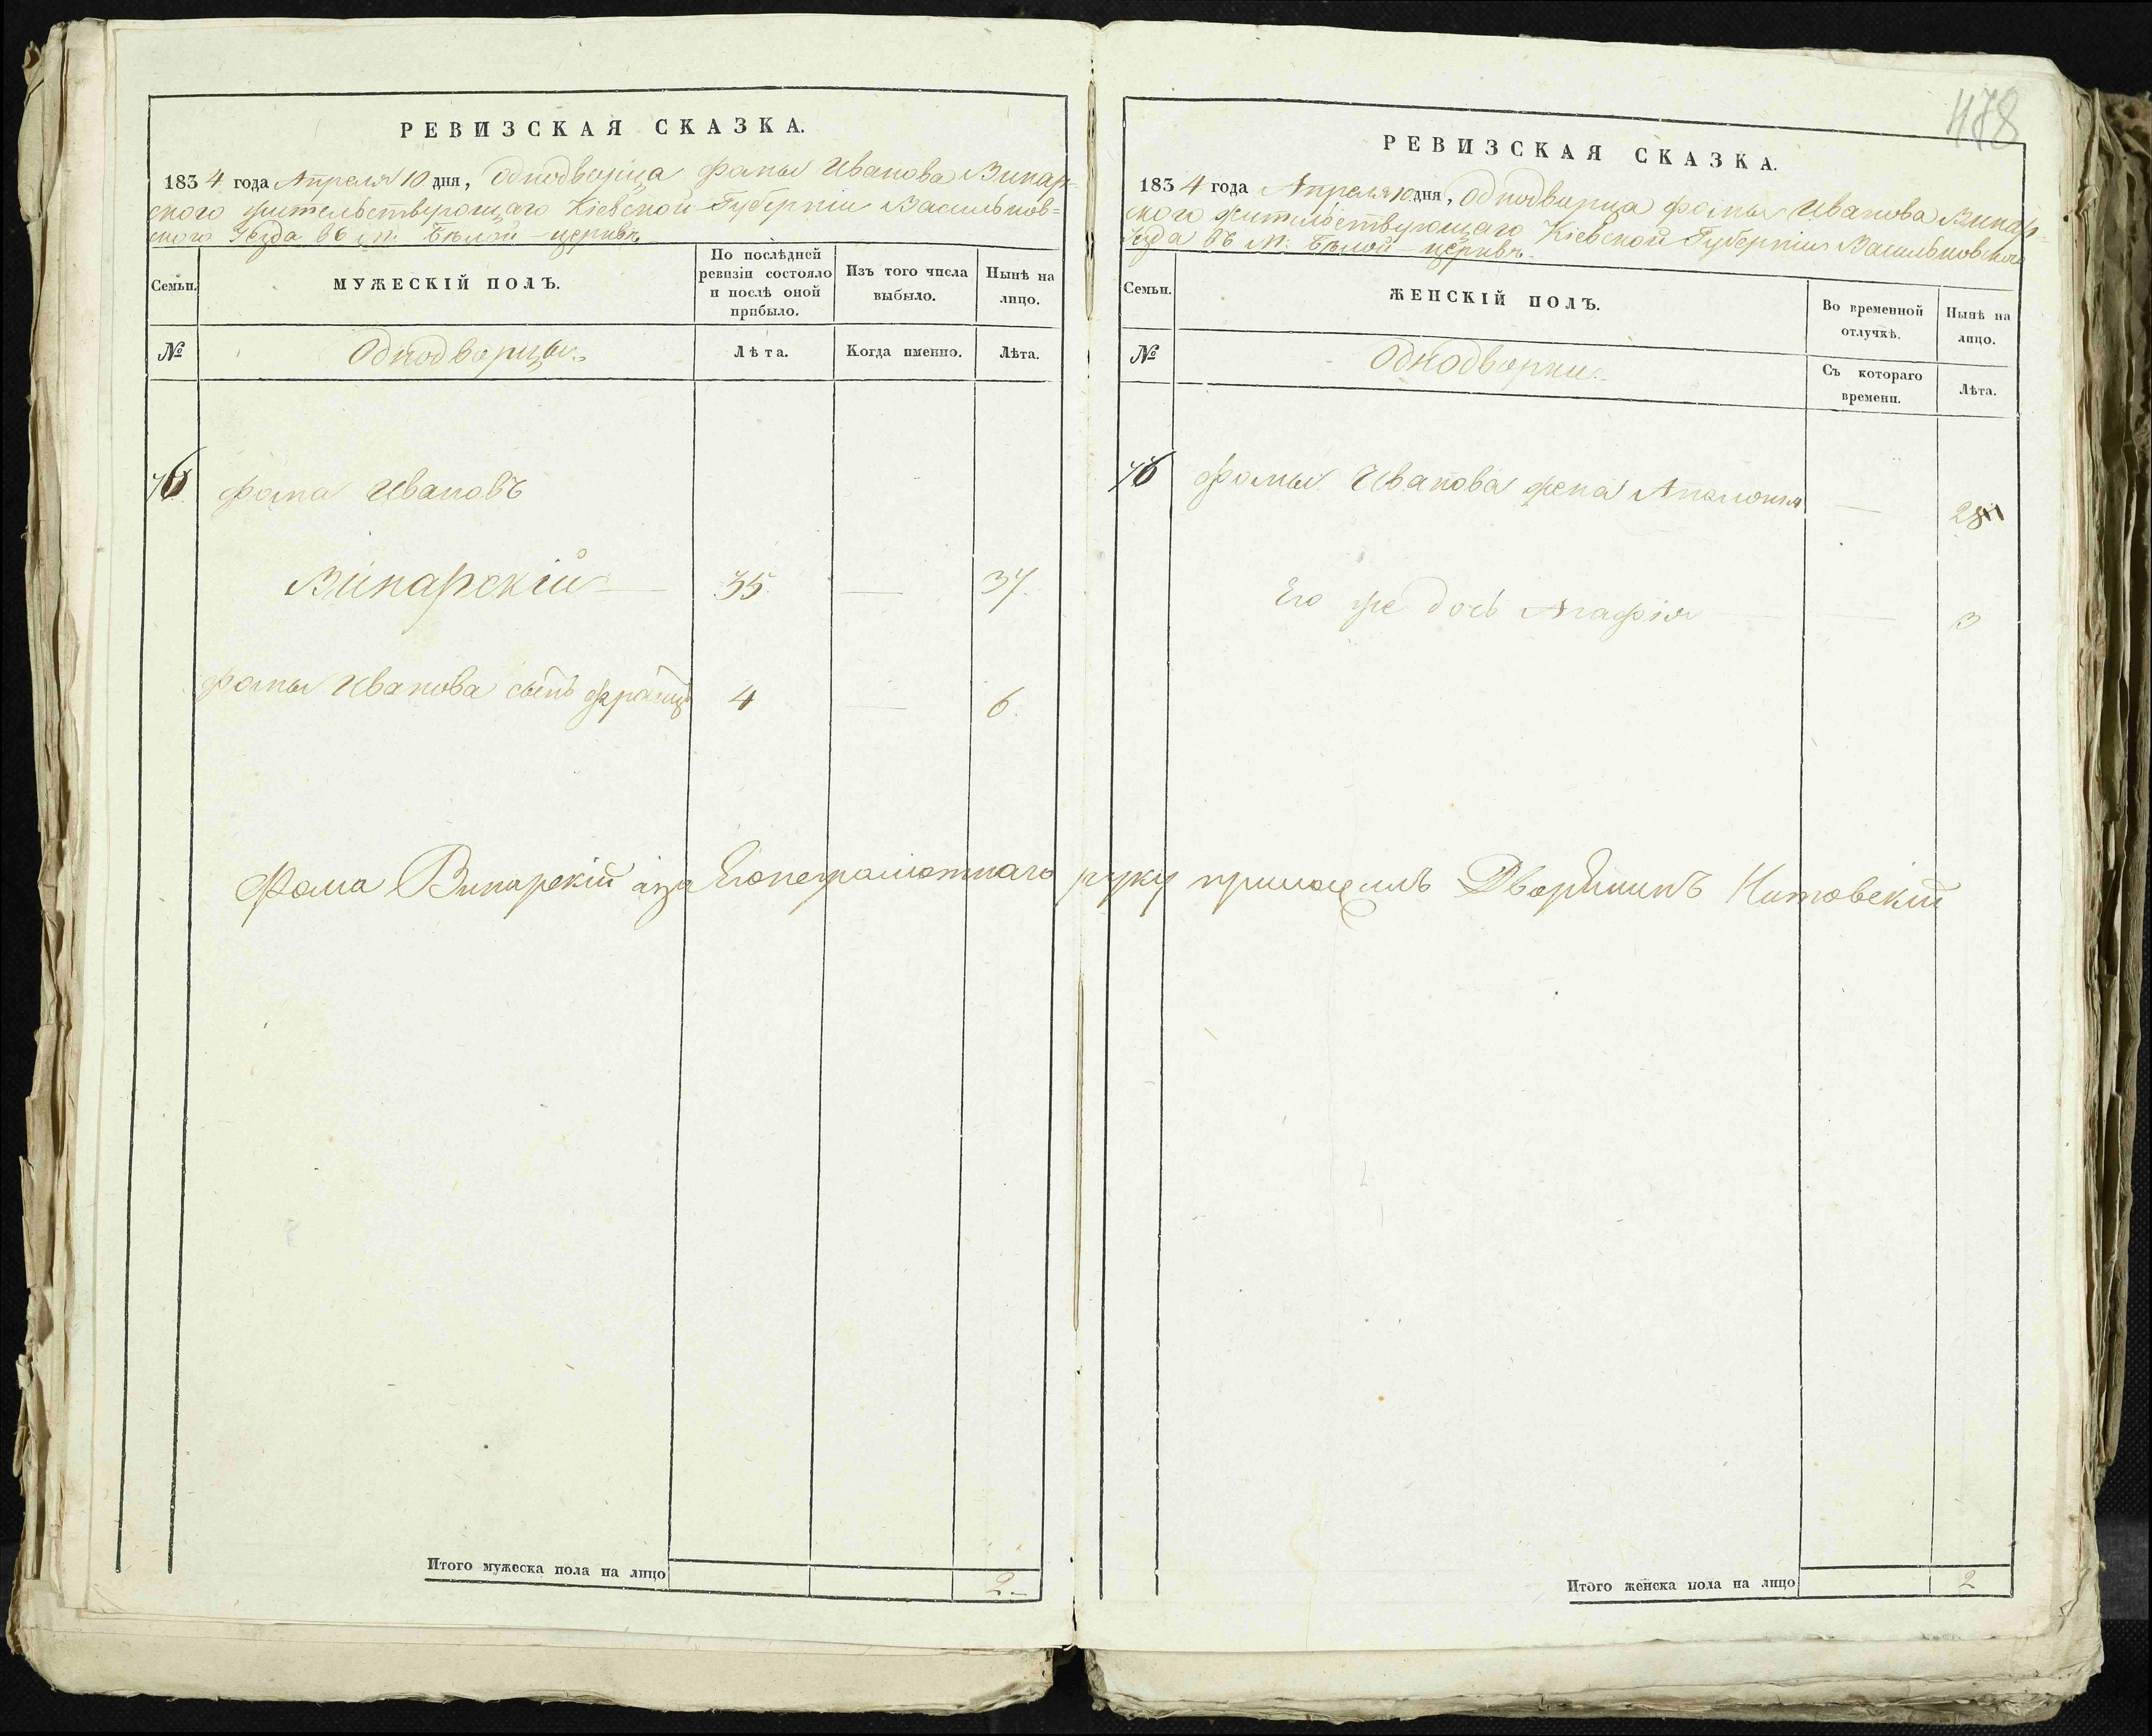 РЕВИЗСКАЯ СКАЗКА.
1834 года Апреля 10 дня, Однодворца Фомы Иванова Випар-
ского жительствующаго Кіевской Губерніи Васильков-
ского Уезда въ м. Бѣлой-церквѣ
Семьи.
МУЖЕСКІЙ ПОЛЪ.
По послѣдней ревизіи состояло и послѣ оной прибыло.
Изъ того числа выбыло.
Нынѣ на лицо.
№
Однодворцы.
Лѣта.
Когда именно.
Лѣта.
Фома Ивановъ
Випарскій 35 — 37.
Фомы Иванова сынъ Францъ 4 — 6.
Фома Випарскій а за Его неграмотнаго руку приложилъ Дворянинъ
Итого мужеска пола на лицо 2.
478
РЕВИЗСКАЯ СКАЗКА.
1834 года Апреля 10 дня, Однодворца Фомы Иванова Випар-
ского жительствующаго Кіевской Губерніи Васильковского
Уезда въ М. Бѣлой-церквѣ.
Семьи.
ЖЕНСКІЙ ПОЛЪ.
Во временной отлучкѣ.
Нынѣ на лицо.
№
Однодворки.
Съ котораго времени.
Лѣта.
76 Фомы Иванова жена Аполонія — 28
Его же дочь Агафія — 3
Итого женска пола на лицо 2